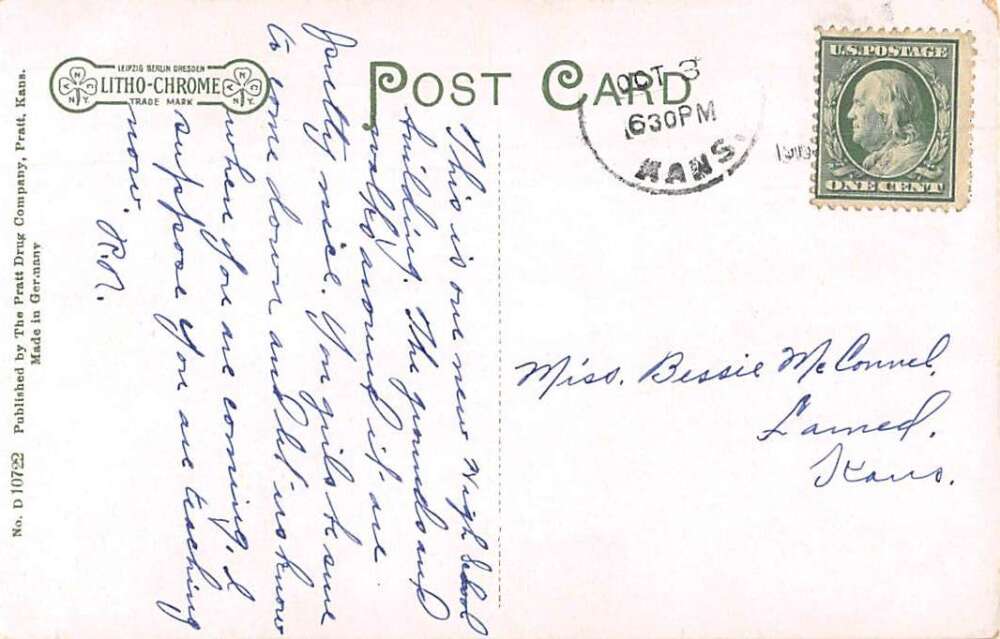 LEIPZIG BERLIN DRESDEN
LITHO-CHROME
TRADE MARK
POST CARD
OCT 3
630PM
KANS.
U.S. POSTAGE
ONE CENT
This is our new High School
building. The grounds and
walks around it are
pretty nice. You girls be sure
to come down and let us know
when you are coming. I
suppose you are teaching
now. R.N.
Miss. Bessie McConnel.
Larned.
Kans.
No. D 10722 Published by The Pratt Drug Company, Pratt, Kans.
Made in Germany